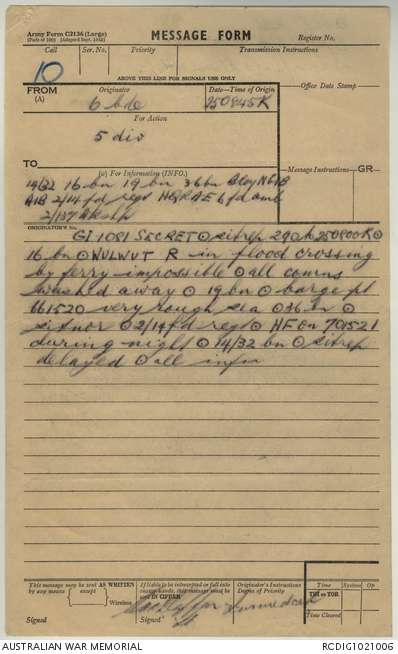 Army Form C2136 (Large)
MESSAGE FORM
Register No.
Call
Ser. No.
Priority
Transmission Instructions
10
ABOVE THIS LINE FOR SIGNALS USE ONLY
FROM
(A)
Originator
Date-Time of Origin
Office Date Stamp
6 bde
250845K
For Action
5 div
TO
(W) For Information (INFO.)
Message Instructions
GR
14/32 16 bn 19 bn 36 bn
A1B 2/14 fd regt HQRAE 6 fd amb
2/137
ORIGINATOR'S No.
GI 1081 SECRET ⊙ sitrep 290 250800K ⊙
16 bn ⊙ WULWUT R in flood crossing
by ferry impossible ⊙ all comns
washed away ⊙ 19 bn ⊙ barge pt
661520 very rough sea ⊙ 36 bn ⊙
sitnor ⊙ 2/14 fd regt ⊙ HF en 701521
during night ⊙ 14/32 bn ⊙ sitrep
delayed ⊙ all infm
This message may be sent AS WRITTEN
by any means
except
Wireless
Signed
If liable to be intercepted or fall into
enemy hands, this message must be
sent IN CIPHER
Signed
Originator's Instructions
Degree of Priority
Time
System
Op
THI or TOR
Time Cleared
for
Lt
AUSTRALIAN WAR MEMORIAL
RCDIG1021006